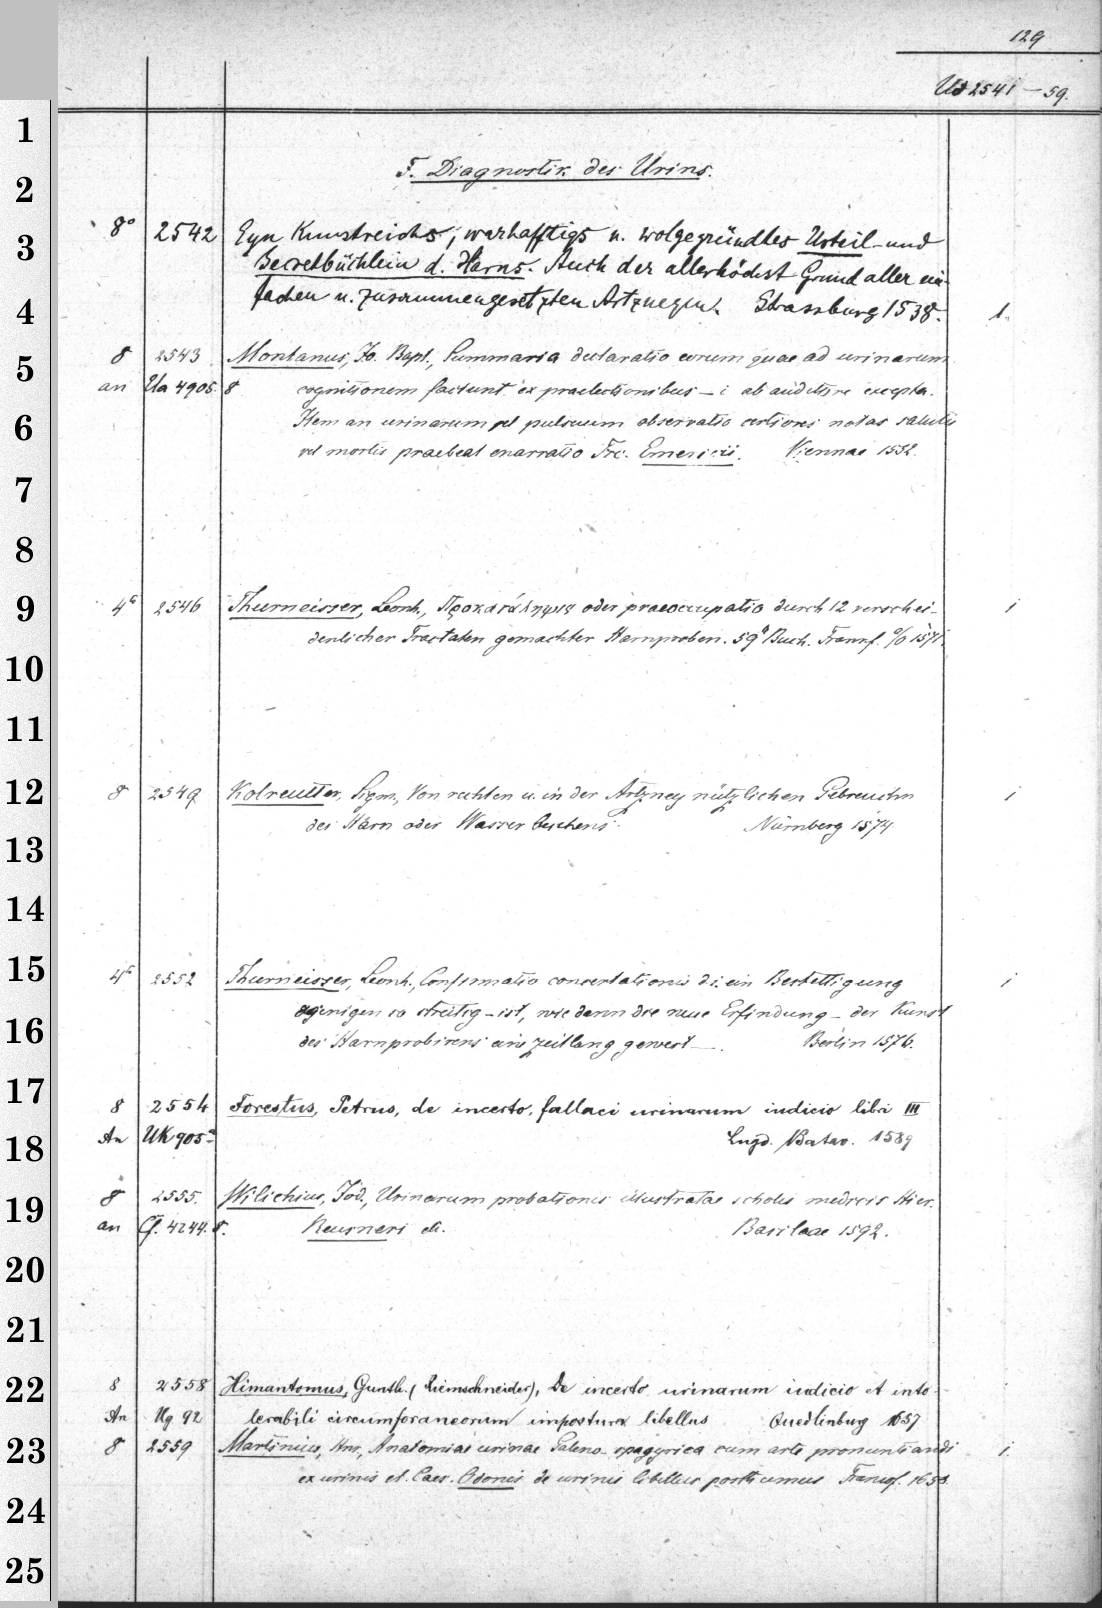 129
Ud 2541-59.
F. Diagnostik des Urins.
8° 2542 Eyn Kunstreichs, warhafftigs u. wolgegründtes Urteil- und
Secretbüchlein d. Harns. Auch der allerhöchst Grund aller ein-
fachen u. zusammengesetzten Artzneyen. Strassburg 1538. 1.
8 2543 Montanus, Jo. Bapt., Summaria declaratio eorum quae ad urinarum
an Ua 4905. 8 cognitionem faciunt ex praelectionibus - i ab auditore excepta.
Item an urinarum vel pulsuum observatio certiores notas salutis
vel mortis praebeat enarratio Frc. Emericii. Viennae 1552.
4° 2546 Thurneisser, Leonh., Προκατάληψις oder praeoccupatio durch 12 verschei- 1
denlicher Tractaten gemachter Harnproben. 59 Buch. Francf. a/O 1571.
8 2549 Kolreutter, Sigm., Von rechten u. in der Artzney nützlichen Gebreuchn 1
des Harn oder Wasser besehens. Nürnberg 1574
4° 2552 Thurneisser, Leonh., Confirmatio concertationis d. i. ein Bestettigung 1
dejenigen so streitig - ist, wie dann die neue Erfindung - der Kunst
des Harnprobirens eine zeitlang gewest -. Berlin 1576.
8 2554 Forestus, Petrus, de incerto, fallaci urinarum iudicio libri III
An UK 905ª Lugd. Batav. 1589
8 2555. Wilichius, Jod., Urinarum probationes illustratae scholis medicis Hier.
an Cf. 4244. 8. Reusneri &. Basileae 1592.
8 2558 Himantomus, Gunth. (Riemschneider), De incerto urinarum iudicio et into-
An Ug 92 lerabili circumforaneorum impostura libellus Quedlinburg 1657
8 2559 Martinius, Hnr., Anatomia urinae Galeno-spagyrica cum arte pronuntiandi 1.
ex urinis et Caes. Odonis de urinis libellus posthumus Francof. 1658.